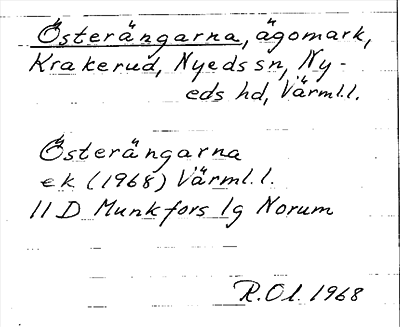 Österängarna, ägomark,
Krakerud, Nyeds sn, Ny-
eds hd, Värml.l.
Österängarna
ek (1968) Värml.l.
11 D Munkfors 1g Norum
R.Ol. 1968